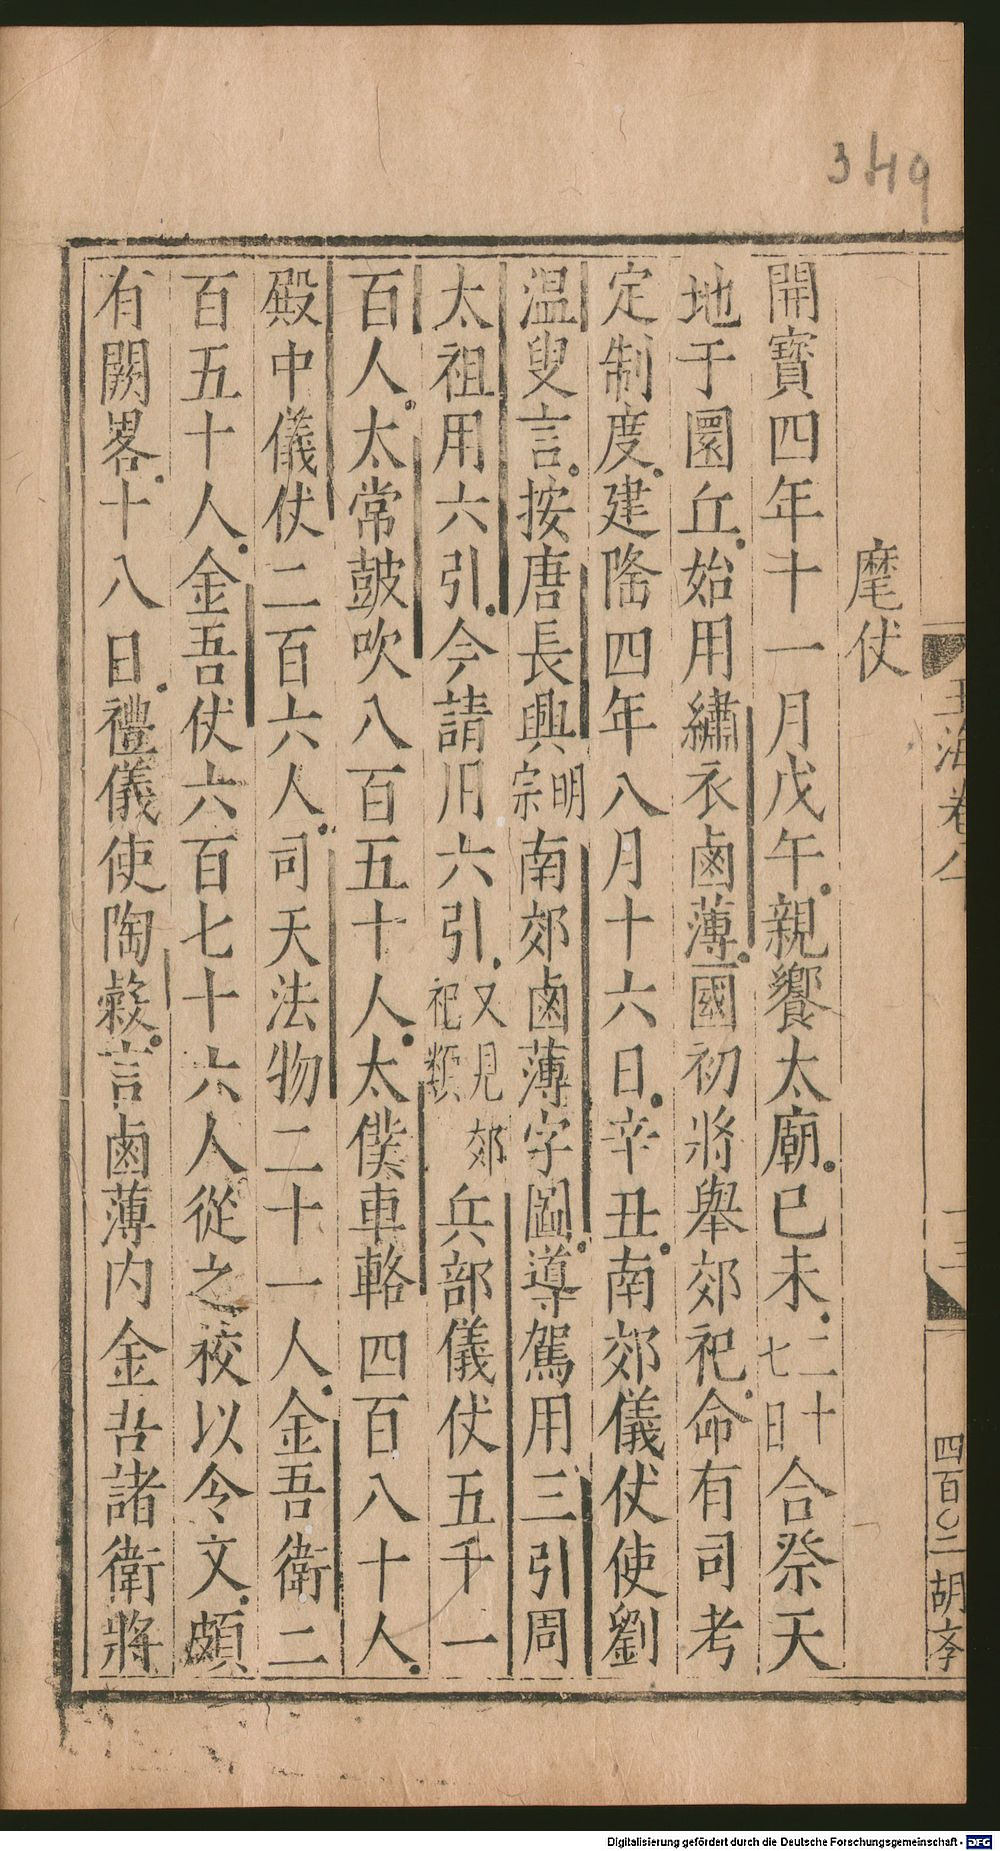 349
麾仗
開寳四年十一月戊午親饗太廟己未二十七日合祭天
地于圜丘始用繡衣鹵薄國初將舉郊祀命有司考
定制度建隆四年八月十六日辛丑南郊儀仗使劉
温叟言按唐長興明宗南郊鹵薄字圖導駕用三引周
太祖用六引今請用六引又見郊祀類兵部儀仗五千一
百人太常皷吹八百五十人太僕車輅四百八十人
殿中儀仗二百六人司天法物二十一人金吾衛二
百五十人金吾仗六百七十六人從之挍以令文頗
有闕畧十八日禮儀使陶糓言鹵薄内金吾諸衛將
玉海卷八
四百〇二
Digitalisierung gefördert durch die Deutsche Forschungsgemeinschaft - DFG